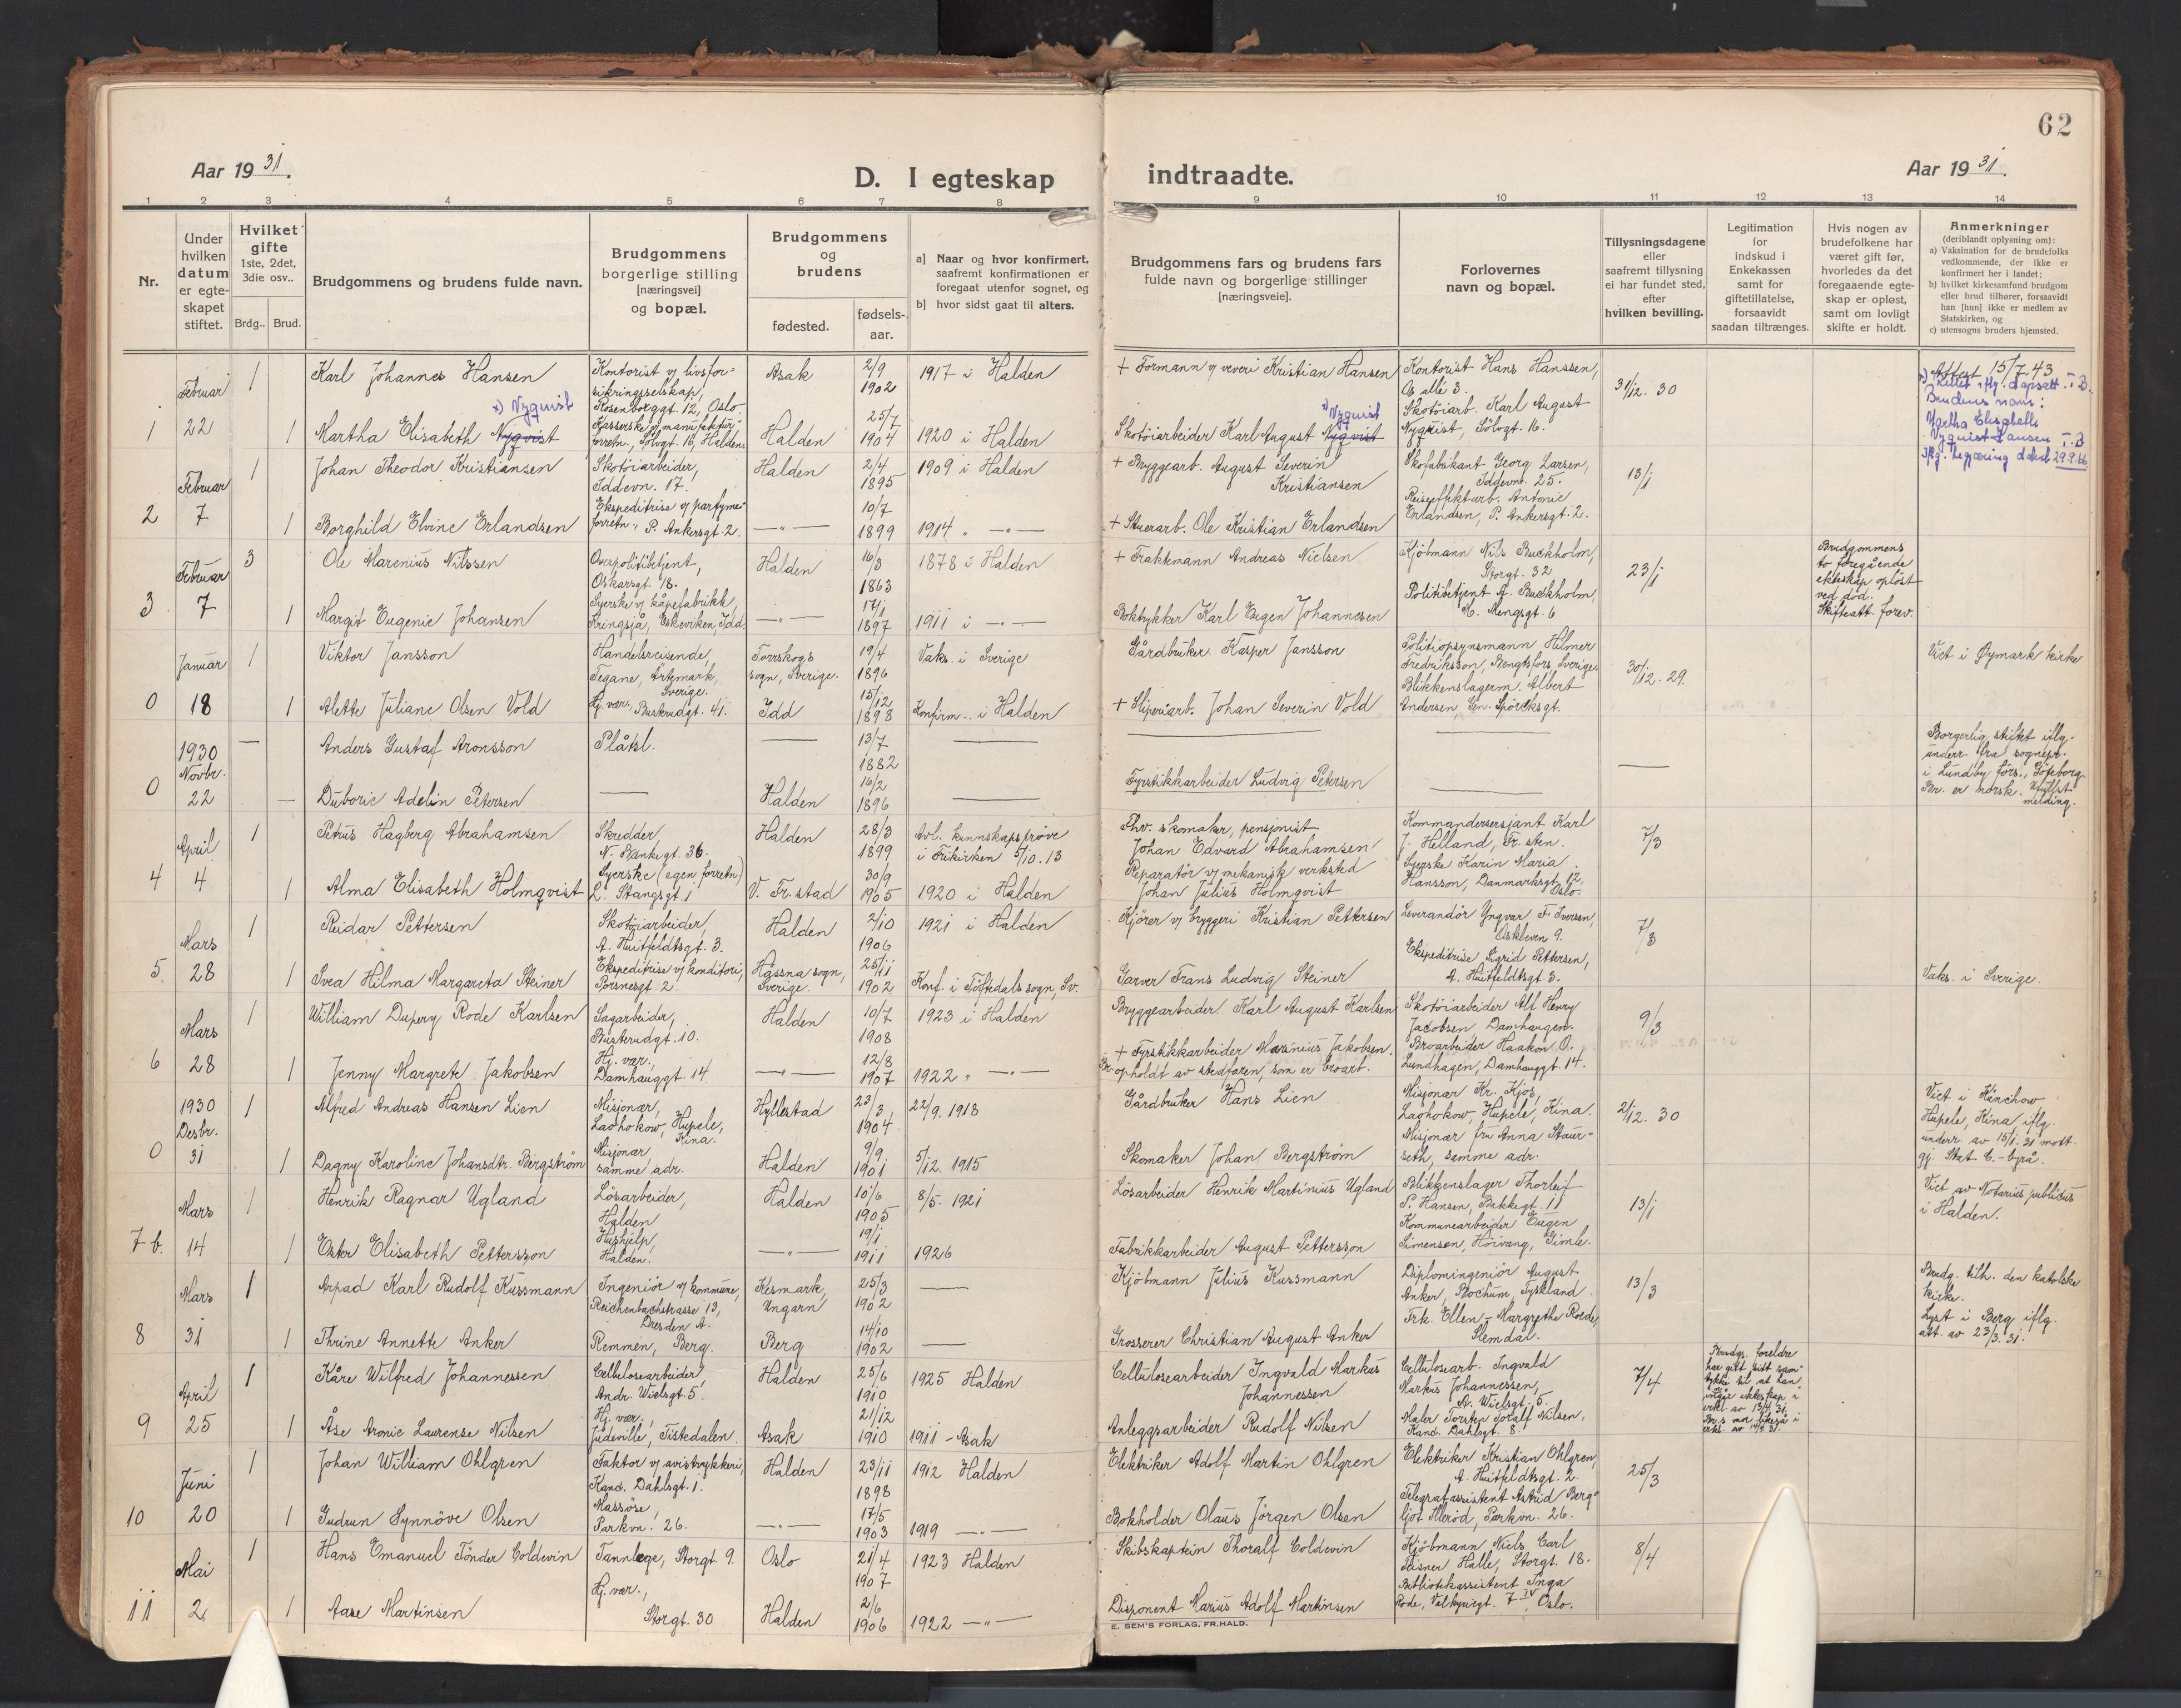 62
Aar 1931.
D. I egteskap
indtraadte.
Aar 1931.
1 2 3 4 5 6 7 8
9 10 11 12 13 14
Nr.
Under hvilken datum er egte-skapet stiftet.
Hvilket gifte 1ste, 2det, 3die osv..
Brdg.. Brud.
Brudgommens og brudens fulde navn.
Brudgommens borgerlige stilling [næringsvei] og bopæl.
Brudgommens og brudens
fødested.
fødsels-aar.
a] Naar og hvor konfirmert, saafremt konfirmationen er foregaat utenfor sognet, og
b] hvor sidst gaat til alters.
Brudgommens fars og brudens fars fulde navn og borgerlige stillinger [næringsveie].
Forlovernes navn og bopæl.
Tillysningsdagene eller saafremt tillysning ei har fundet sted, efter hvilken bevilling.
Legitimation for indskud i Enkekassen samt for giftetillatelse, forsaavidt saadan tiltrænges.
Hvis nogen av brudefolkene har været gift før, hvorledes da det foregaaende egte-skap er opløst, samt om lovligt skifte er holdt.
Anmerkninger
(deriblandt oplysning om):
a) Vaksination for de brudefolks vedkommende, der ikke er konfirmert her i landet;
b) hvilket kirkesamfund brudgom eller brud tilhører, forsaavidt han [hun] ikke er medlem av Statskirken, og
c) utensogns bruders hjemsted.
1 Februar 22
1 Karl Johannes Hansen
Kontorist v/ livsfor-
sikringsselskap,
Rosenborggt. 12, Oslo.
Asak 2/9 1902 1917 i Halden
+ Formann v/ veveri Kristian Hansen
Kontorist Hans Hanssen,
Os allé 3.
31/12. 30
Attest 15/7.43
Brudens navn:
Martha Elisabeth
Nyquist Hansen
x) Nyquist
1 Martha Elisabeth Nyqvist
Kasserske v/ manufaktur-
forretn., Sølvgt. 16, Halden
Halden 25/7 1904 1920 i Halden
x) Nyquist
Skotøiarbeider Karl August Nyqvist
Skotøiarb. Karl August
Nyquist, Sølvgt. 16.
2 Februar 7
1 Johan Theodor Kristiansen
Skotøiarbeider,
Iddevn. 17.
Halden 2/4 1895 1909 i Halden
+ Bryggearb. August Severin
Kristiansen
Skofabrikant Georg Larsen,
Iddevn. 25.
13/1
1 Borghild Elvine Erlandsen
Ekspeditrise v/ parfyme-
forretn., P. Ankersgt. 2.
—"— 10/7 1899 1914 " —"—
+ Stuerarb. Ole Kristian Erlandsen
Reiseeffektarb. Antonie
Erlandsen, P. Ankersgt. 2.
3 Februar 7
3 Ole Marenius Nilssen
Overpolitibetjent,
Oskarsgt. 18.
Halden 16/3 1863 1878 i Halden
+ Fraktmann Andreas Nielsen
Kjøbmann Nils Buckholm,
Storgt. 32
23/1
Brudgommens
to foregående
ekteskap opløst
ved død.
Skifteatt. forev.
1 Margit Eugenie Johansen
Syerske v/ kåpefabrikk,
Kringsjå, Eskeviken, Idd
—"— 17/1 1897 1911 i —"—
Boktrykker Karl Eugen Johannesen
Politibetjent A. Buckholm,
M. Mengsgt. 6
0 Januar 18
1 Viktor Jansson
Handelsreisende,
Tegane, Ärtemark,
Sverige.
Torrskogs
sogn, Sverige. 19/4 1896 Vaks. i Sverige
Gårdbruker Kasper Jansson
Politiopsynsmann Hilmer
Fredriksson, Bengtsfors, Sverige.
30/12. 29.
Viet i Øymark kirke
1 Alette Juliane Olsen Vold
Hj. vær., Buskrudgt. 41.
Idd 15/12 1898 Konfirm. i Halden
+ Sliperiarb. Johan Severin Vold
Blikkenslagerm. Albert
Andersen, Gen. Spørcksgt.
0 1930 Novbr. 22
— Anders Gustaf Aronsson
Plåtsl.
— 13/7 1882 —
Borgerlig stiftet iflg.
underr. fra sognepr.
i Lundby förs., Göteborg.
Br. er norsk. Utfylt
melding.
— Duborie Adelin Petersen
— Halden 16/2 1896 —
Fyrstikkarbeider Ludvig Petersen
4 April 4
1 Petrus Hagberg Abrahamsen
Skredder,
N. Bankegt. 36.
Halden 28/3 1899
Avl. kunnskapsprøve
i Frikirken 5/10. 13
Fhv. skomaker, pensjonist
Johan Edvard Abrahamsen
Kommandersersjant Karl
J. Helland, Fr. sten.
7/3
1 Alma Elisabeth Holmqvist
Syerske (egen forretn.)
L. Stangsgt. 1
V. Fr.stad 30/9 1905 1920 i Halden
Reparatør v/ mekanisk verksted
Johan Julius Holmqvist
Syerske Karin Maria
Hansson, Danmarksgt. 12,
Oslo.
5 Mars 28
1 Reidar Pettersen
Skotøiarbeider,
A. Huitfeldtsgt. 3.
Halden 2/10 1906 1921 i Halden
Kjører v/ bryggeri Kristian Pettersen
Leverandør Yngvar F. Iversen,
Oskleven 9.
7/3
1 Svea Hilma Margareta Steiner
Ekspeditrise v/ konditori,
Borsnesgt. 2.
Håssna sogn,
Sverige. 25/11 1902 Konf. i Töftedals sogn, Sv.
Garver Frans Ludvig Steiner
Ekspeditrise Sigrid Pettersen,
A. Huitfeldtsgt. 3.
Vaks. i Sverige.
6 Mars 28
1 William Dupery Rode Karlsen
Sagarbeider,
Busterudgt. 10.
Halden 10/7 1908 1923 i Halden
Bryggearbeider Karl August Karlsen
Skotøiarbeider Alf Henry
Jacobsen, Damhaugen.
9/3
1 Jenny Margrete Jakobsen
Hj. vær.,
Damhauggt. 14
—"— 12/8 1907 1922 " —"—
+ Fyrstikkarbeider Marinius Jakobsen.
Br. opholdt av stedfaren, som er broarb.
Broarbeider Haakon O.
Lundhagen, Damhauggt. 14.
0 1930 Desbr. 31
1 Alfred Andreas Hansen Lien
Misjonær,
Laohokow, Hupele,
Kina.
Hyllestad 23/3 1904 22/9. 1918
Gårdbruker Hans Lien
Misjonær Kr. Kjøs,
Laohokow, Hupele, Kina.
2/12. 30
Viet i Kinchow
Hupele, Kina iflg.
underr. av 15/1. 31 mott.
gj. Stat. C.-byrå.
1 Dagny Karoline Johansdtr. Bergström
Misjonær,
samme adr.
Halden 9/9 1901 5/12. 1915
Skomaker Johan Bergström
Misjonær fru Anna Staur-
seth, samme adr.
7 b. Mars 14
1 Henrik Ragnar Ugland
Løsarbeider,
Halden
Halden 10/6 1905 8/5. 1921
Løsarbeider Henrik Martinius Ugland
Blikkenslager Thorleif
P. Hansen, Bakkegt. 11
13/1
Viet av Notarius publicus
i Halden.
1 Ester Elisabeth Pettersson
Hushjelp,
Halden.
—"— 19/1 1911 1926
Fabrikkarbeider August Pettersson
Kommunearbeider Eugen
Simensen, Høivang, Gimle.
8 Mars 31
1 Arpad Karl Rudolf Kussmann
Ingeniør v/ kommune,
Reichenbachstrasse 13,
Dresden A.
Késmark,
Ungarn 25/3 1902 —
Kjøbmann Julius Kussmann
Diplomingeniør August
Anker, Bochum, Tyskland.
13/3
Brudg. tilh. den katolske
kirke.
Lyst i Berg iflg.
att. av 23/3. 31.
1 Thrine Annette Anker
Remmen, Berg.
Berg 14/10 1902 —
Grosserer Christian August Anker
Frk. Ellen-Margrethe Roede,
Slemdal.
9 April 25
1 Kåre Wilfred Johannessen
Cellulosearbeider,
Andr. Wielsgt. 5.
Halden 25/6 1910 1925 Halden
Cellulosearbeider Ingvald Markus
Johannessen
Cellulosearb. Ingvald
Markus Johannessen,
A. Wielsgt. 5.
7/4
Brudg. foreldre
har gitt sitt sam-
tykke til at han
inngår ekteskap i
erkl. av 13/4 31.
Br.s mor likeså i
erkl. av 14/4 31.
1 Åse Aronie Laurense Nilsen
Hj. vær.,
Judeville, Tistedalen.
Asak 21/12 1910 1911 – Asak
Anleggsarbeider Rudolf Nilsen
Maler Torsten Toralf Nilsen,
Kand. Dahlsgt. 8.
10 Juni 20
1 Johan William Ohlgren
Faktor v/ avistrykkeri,
Kand. Dahlsgt. 1.
Halden 23/11 1898 1912 Halden
Elektriker Adolf Martin Ohlgren
Elektriker Kristian Ohlgren,
A. Huitfeldtsgt. 2.
25/3
1 Gudrun Synnöve Olsen
Massøse,
Parkvn. 26.
—"— 17/5 1903 1919 —"—
Bokholder Olaus Jørgen Olsen
Telegrafassistent Astrid Berg-
ljot Illerød, Parkvn. 26.
11 Mai 2
1 Hans Emanuel Tönder Coldevin
Tannlege, Storgt. 9.
Oslo 21/4 1907 1923 Halden
Skibskaptein Thoralf Coldevin
Kjøbmann Niels Carl
Heisner Halle, Storgt. 18.
8/4
1 Aase Martinsen
Hj. vær.,
Storgt. 30
Halden 2/6 1906 1922 —"—
Disponent Marius Adolf Martinsen
Bibliotekassistent Inga
Rode, Valkyriegt. 7 IV Oslo.
E. SEM'S FORLAG, FR.HALD.